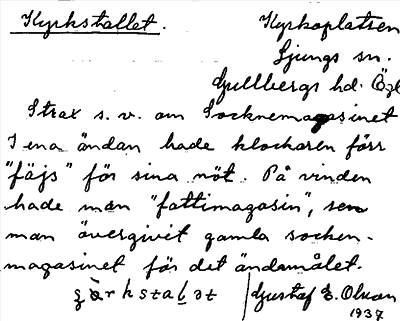 Kyrkstallet. Kyrkoplatsen
Ljungs sn.
Gullbergs hd. Ögl
Strax s. v. om Socknemagasinet
I ena ändan hade klockaren förr
"fäjs" för sina nöt. På vinden
hade man "fattimagasin", sen
man övergivit gamla socken-
magasinet för det ändamålet.
Gustaf E. Olson
1937